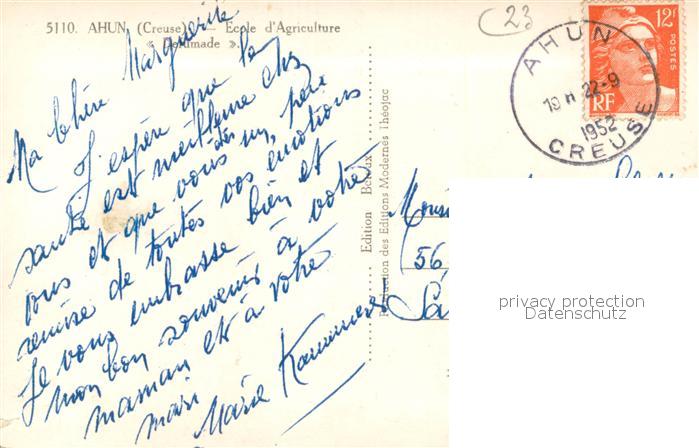 5110. AHUN (Creuse) — Ecole d'Agriculture
23
AHUN
19 H 22-9
1952
CREUSE
12F
POSTES
RF
Ma Chère Marguerite
J'espère que la
santé est meilleure chez
vous et que vous êtes un peu
remise de toutes vos émotions
Je vous embrasse bien et
mon bon souvenir à votre
maman et à votre
mari
Marie
Edition
Production des Editions Modernes Théojac
56,
privacy protection
Datenschutz